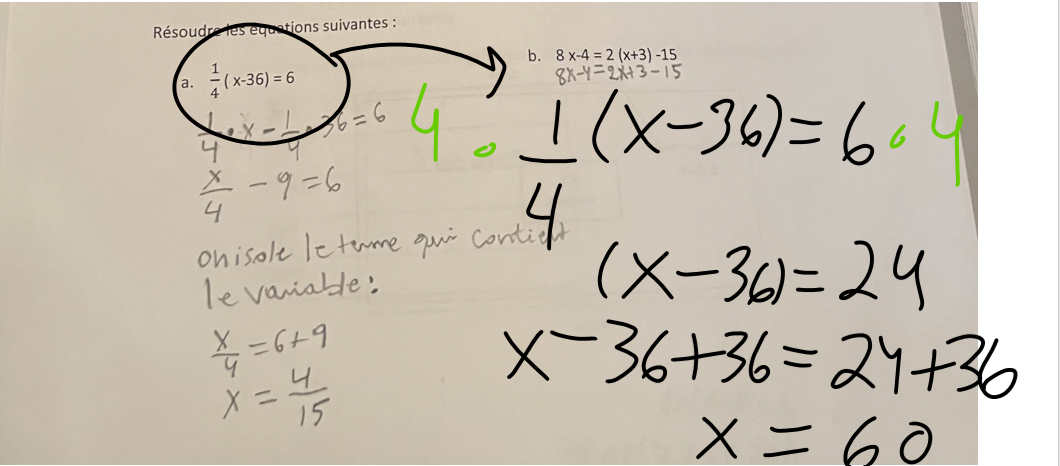 Résoudre les équations suivantes :
a. 1/4 ( x-36) = 6
1/4 • x - 1/4 • 36 = 6
x/4 - 9 = 6
on isole le terme qui contient
le variable :
x/4 = 6+9
x = 4/15
b. 8 x-4 = 2 (x+3) -15
8x-4=2x+3-15
4 • 1/4 (x-36) = 6 • 4
(x-36) = 24
x-36+36 = 24+36
x = 60